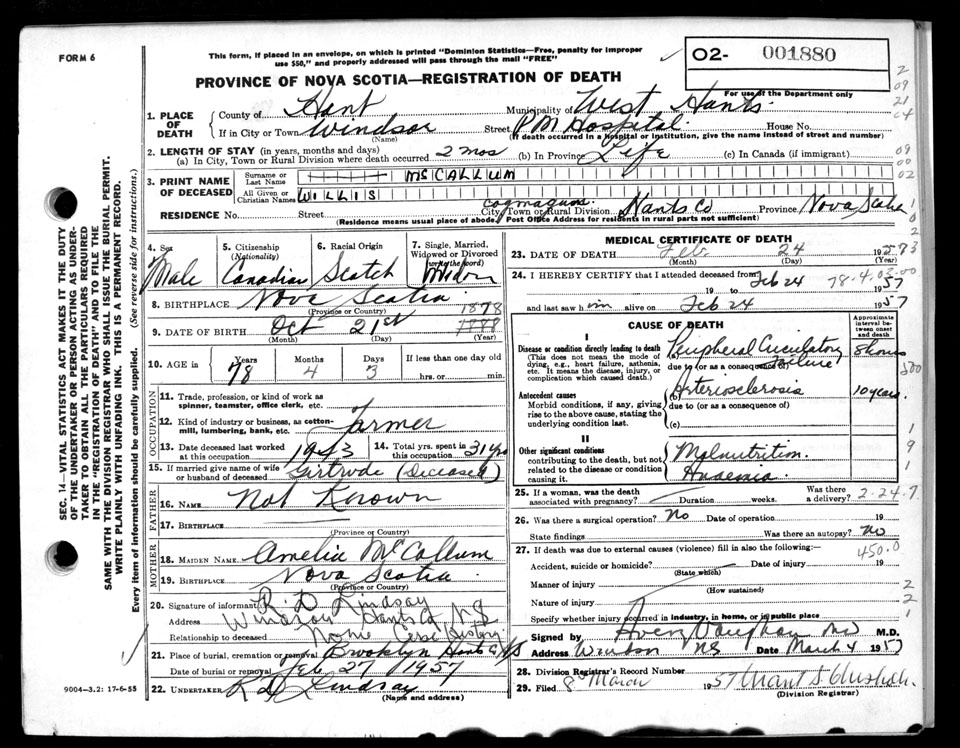 FORM 6
This form, if placed in an envelope, on which is printed "Dominion Statistics—Free, penalty for improper
use $50," and properly addressed will pass through the mail "FREE"
02- 001880
PROVINCE OF NOVA SCOTIA—REGISTRATION OF DEATH
For use of the Department only
2
09
21
04
09
00
02
1. PLACE OF DEATH
County of Hant Municipality of West Hants
If in City or Town Windsor Street P M Hospital House No.
(Name) (If death occurred in a Hospital or Institution, give the name instead of street and number)
2. LENGTH OF STAY (in years, months and days)
(a) In City, Town or Rural Division where death occurred 2 mos (b) In Province Life (c) In Canada (if immigrant)
3. PRINT NAME OF DECEASED
Surname or Last Name McCALLUM
All Given or Christian Names WILLIS
RESIDENCE No. Street City, Town or Rural Division Hants Co Province Nova Scotia
(Residence means usual place of abode. Post Office Address for residents in rural parts not sufficient)
4. Sex Male
5. Citizenship (Nationality) Canadian
6. Racial Origin Scotch
7. Single, Married, Widowed or Divorced (write the word)
8. BIRTHPLACE Nova Scotia
(Province or Country)
1878
9. DATE OF BIRTH Oct 21st 1888
(Month) (Day) (Year)
10. AGE in 78 Years 4 Months 3 Days If less than one day old
hrs. or min.
OCCUPATION
11. Trade, profession, or kind of work as
spinner, teamster, office clerk, etc.
12. Kind of industry or business, as cotton-
mill, lumbering, bank, etc. Farmer
13. Date deceased last worked at this occupation 1943
14. Total yrs. spent in this occupation 31 yrs
15. If married give name of wife or husband of deceased Gertrude (Deceased)
FATHER
16. NAME Not Known
17. BIRTHPLACE
(Province or Country)
MOTHER
18. MAIDEN NAME Amelia McCallum
19. BIRTHPLACE Nova Scotia
(Province or Country)
20. Signature of informant R. D Lindsay
Address Windsor Hants Co NS
Relationship to deceased None Case History
21. Place of burial, cremation or removal Brooklyn Hants Co NS
Date of burial or removal Feb 27 1957
22. UNDERTAKER R D Lindsay
(Name and address)
9004-3.2: 17-6-55
SEC. 14—VITAL STATISTICS ACT MAKES IT THE DUTY
OF THE UNDERTAKER OR PERSON ACTING AS UNDER-
TAKER TO OBTAIN ALL THE PARTICULARS REQUIRED
IN THE "REGISTRATION OF DEATH" AND TO FILE THE
SAME WITH THE DIVISION REGISTRAR WHO SHALL ISSUE THE BURIAL PERMIT.
WRITE PLAINLY WITH UNFADING INK. THIS IS A PERMANENT RECORD.
Every item of information should be carefully supplied. (See reverse side for instructions.)
MEDICAL CERTIFICATE OF DEATH
23. DATE OF DEATH Feb. 24 1957
(Month) (Day)
24. I HEREBY CERTIFY that I attended deceased from Feb 24
78.4.03.00
19 to 1957
and last saw him alive on Feb 24 1957
CAUSE OF DEATH
Approximate interval between onset and death
I
Disease or condition directly leading to death
(This does not mean the mode of dying, e.g., heart failure, asthenia, etc. It means the disease, injury, or complication which caused death.)
(a) Peripheral Circulatory Failure 8 hours
due to (or as a consequence of)
Antecedent causes
Morbid conditions, if any, giving rise to the above cause, stating the underlying condition last.
(b) Arteriosclerosis 10 years
due to (or as a consequence of)
(c)
II
Other significant conditions
contributing to the death, but not related to the disease or condition causing it.
Malnutrition
Anaemia
25. If a woman, was the death associated with pregnancy? Duration weeks. Was there a delivery?
2-24-7
26. Was there a surgical operation? No Date of operation 19
State findings Was there an autopsy? No
27. If death was due to external causes (violence) fill in also the following:—
450.0
Accident, suicide or homicide? Date of injury 19
(State which)
Manner of injury
(How sustained)
Nature of injury
Specify whether injury occurred in industry, in home, or in public place
Signed by Vaughan MD M.D.
Address Windsor NS Date March 4 1957
28. Division Registrar's Record Number
29. Filed 8 March 1957
(Division Registrar)